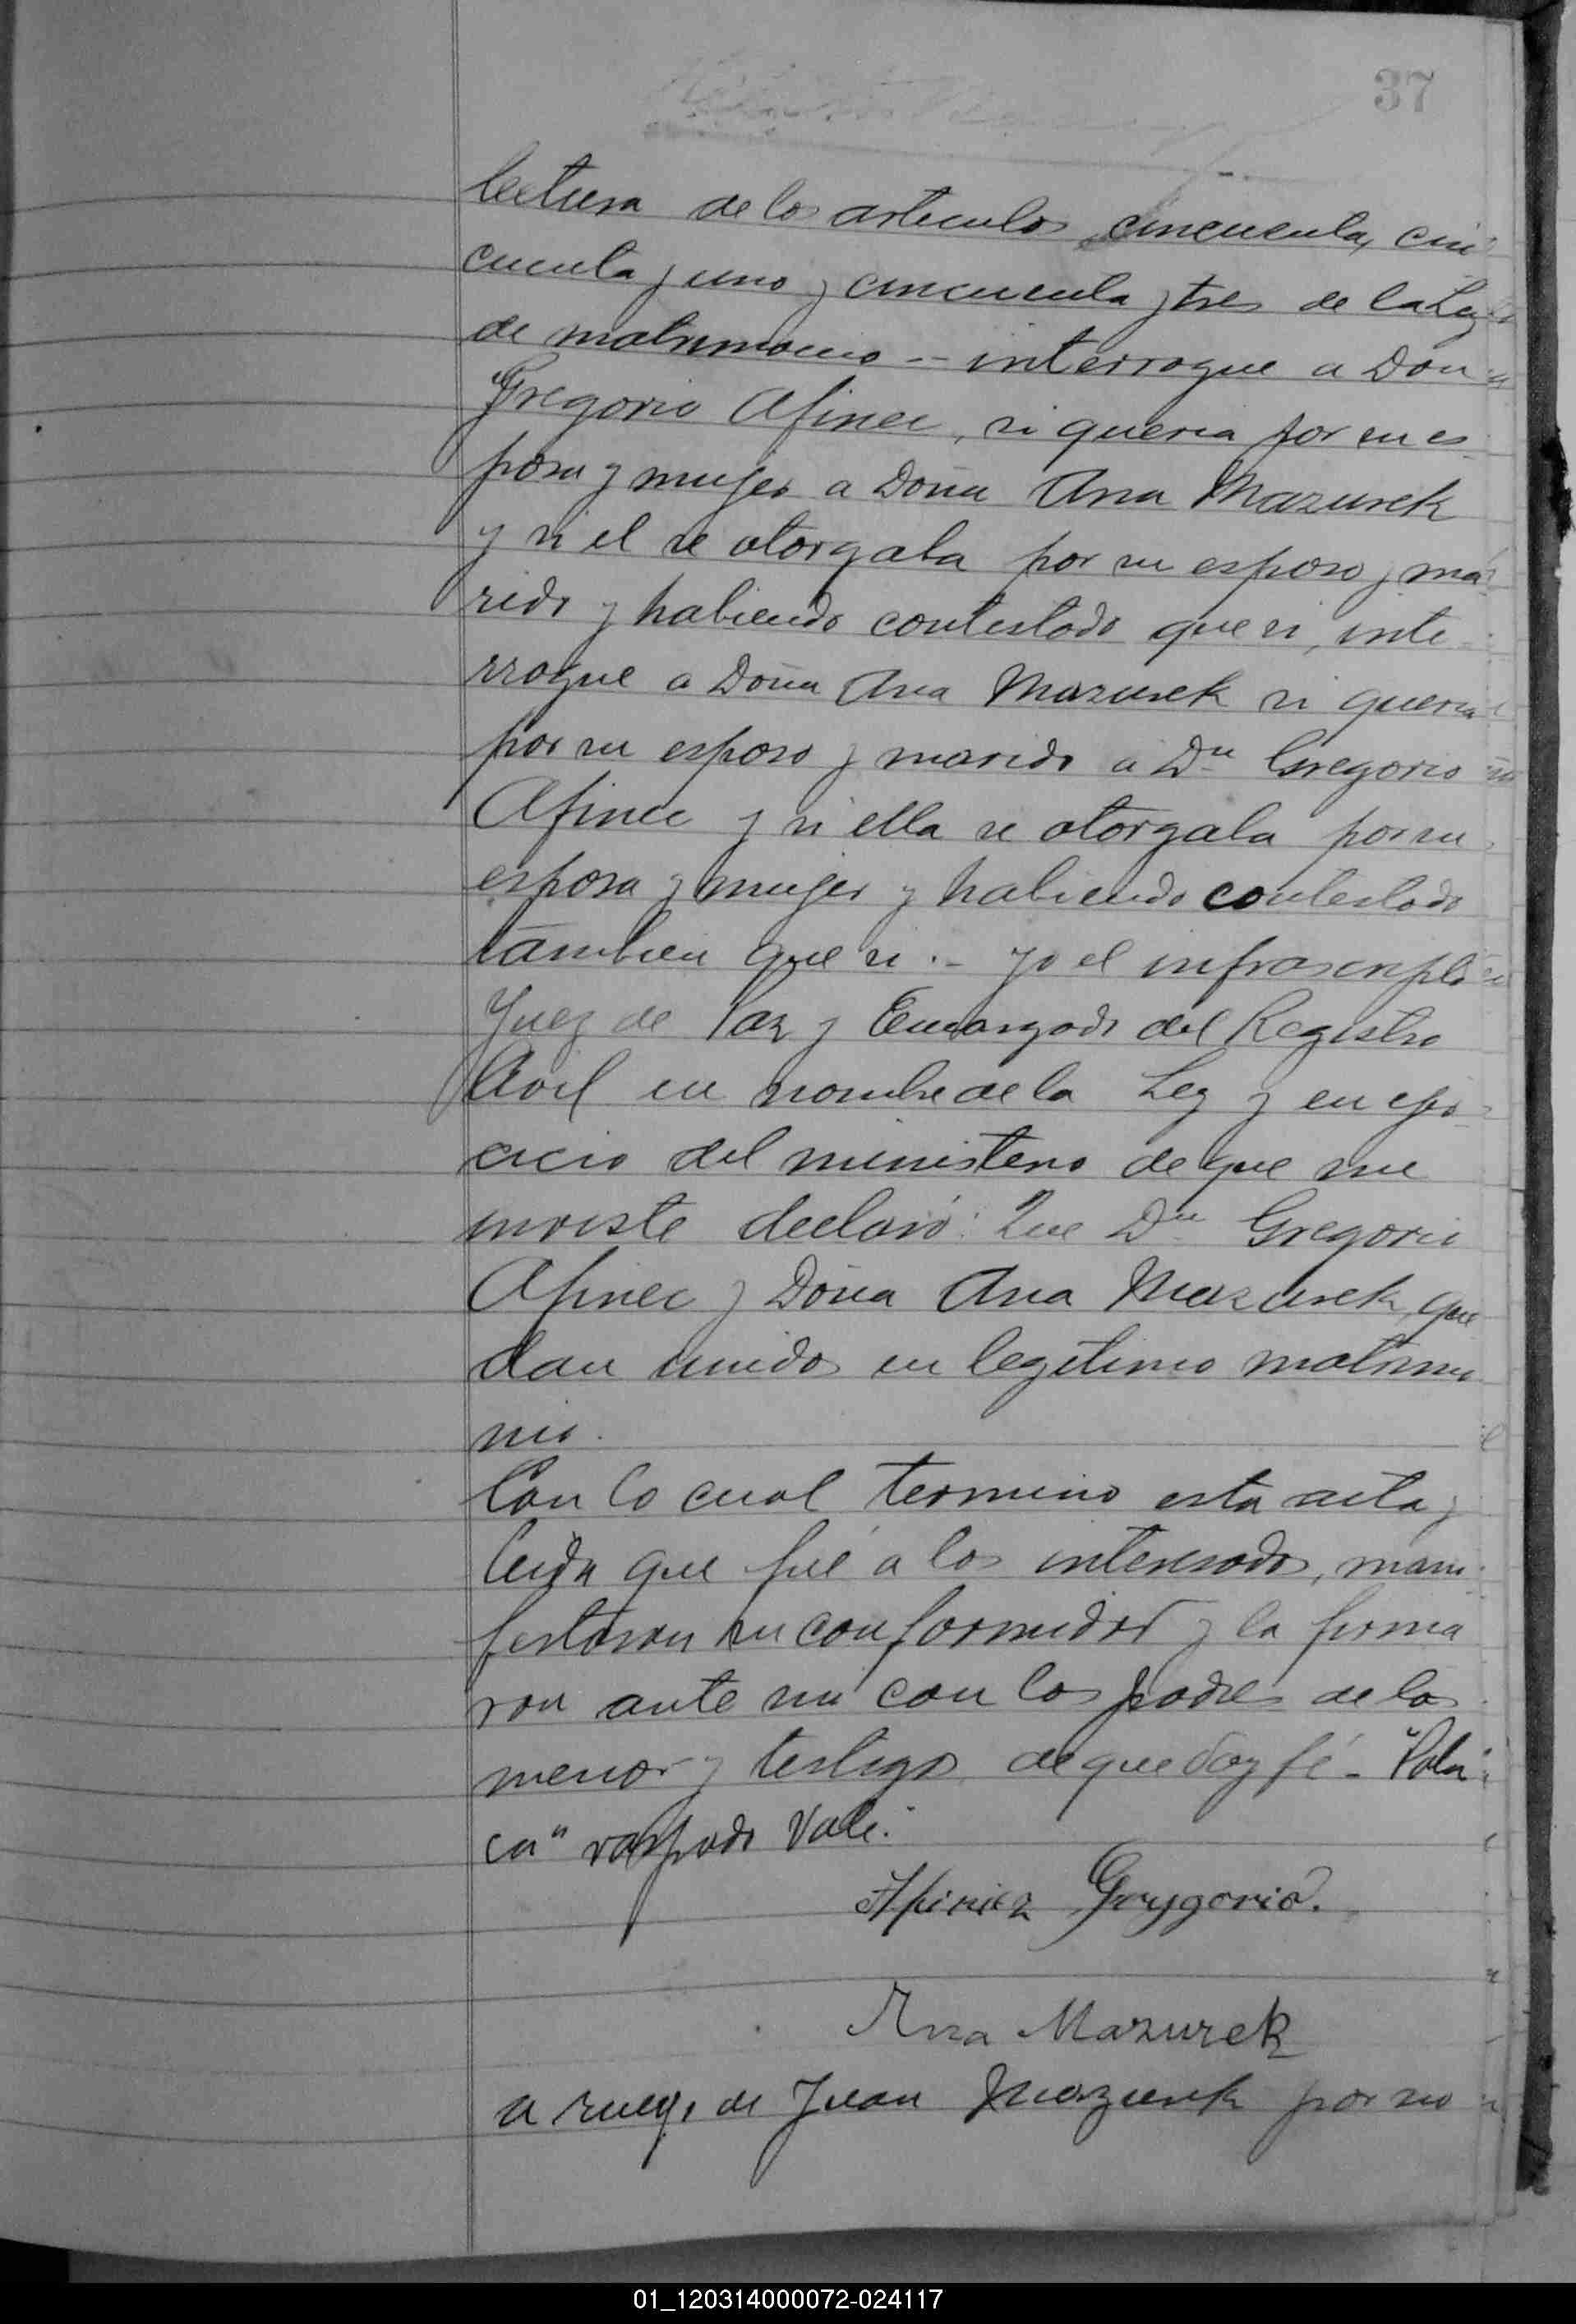 37
lectura de los articulos cincuenta, cin
cuenta y uno y cincuenta y tres de la Ley
de matrimonio -- interrogue a Don
Gregorio Afinec, si queria por su es
posa y mujer a Doña Ana Mazurek
y si el se otorgaba por su esposo y ma
rido y habiendo contestado que si, inte
rrogue a Doña Ana Mazurek si queria
por su esposo y marido a Dn Gregorio
Afinec y si ella se otorgaba por su
esposa y mujer y habiendo contestado
tambien que si .- yo el infrascripto
Juez de Paz y Encargado del Registro
Civil en nombre de la Ley y en ejer
cicio del ministerio de que me
inviste declaró: Que Dn Gregorio
Afinec y Doña Ana Mazurek, que
dan unidos en legitimo matrimo
nio.
Con lo cual termino esta acta y
leida que fué a los interesados, mani
festaron su conformidad y la firma
ron ante mi con los padres de la
menor y testigos de que doy fé - "Pola
ca" raspado Vale.-
Afiniez Grygorio.
Ana Mazurek
a ruego de Juan Mazurek por no
01_120314000072-024117